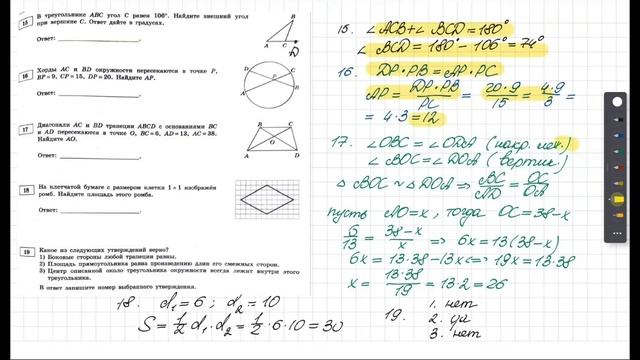 15
В треугольнике ABC угол C равен 106°. Найдите внешний угол
при вершине C. Ответ дайте в градусах.
Ответ:
B
A
C
D
16
Хорды AC и BD окружности пересекаются в точке P,
BP=9, CP=15, DP=20. Найдите AP.
Ответ:
D
C
P
A
B
17
Диагонали AC и BD трапеции ABCD с основаниями BC
и AD пересекаются в точке O, BC=6, AD=13, AC=38.
Найдите AO.
Ответ:
B
C
O
A
D
18
На клетчатой бумаге с размером клетки 1×1 изображён
ромб. Найдите площадь этого ромба.
Ответ:
19
Какое из следующих утверждений верно?
1) Боковые стороны любой трапеции равны.
2) Площадь прямоугольника равна произведению длин его смежных сторон.
3) Центр описанной около треугольника окружности всегда лежит внутри этого
треугольника.
В ответ запишите номер выбранного утверждения.
18. d₁=6; d₂=10
S = 1/2 d₁·d₂ = 1/2·6·10 = 30
15. ∠ACB+∠BCD=180°
∠BCD = 180° − 106° = 74°
16. DP·PB = AP·PC
AP = DP·PB/PC = 20·9/15 = 4·9/3 =
= 4·3 = 12
17. ∠OBC = ∠ODA (накр. леж.)
∠BOC = ∠DOA (вертик.)
△BOC ~ △DOA ⇒ BC/AD = OC/OA
пусть AO=x, тогда OC=38-x
6/13 = 38-x/x ⇒ 6x=13(38-x)
6x = 13·38-13x ⇔ 19x=13·38
x = 13·38/19 = 13·2 = 26
19. 1. нет
2. да
3. нет